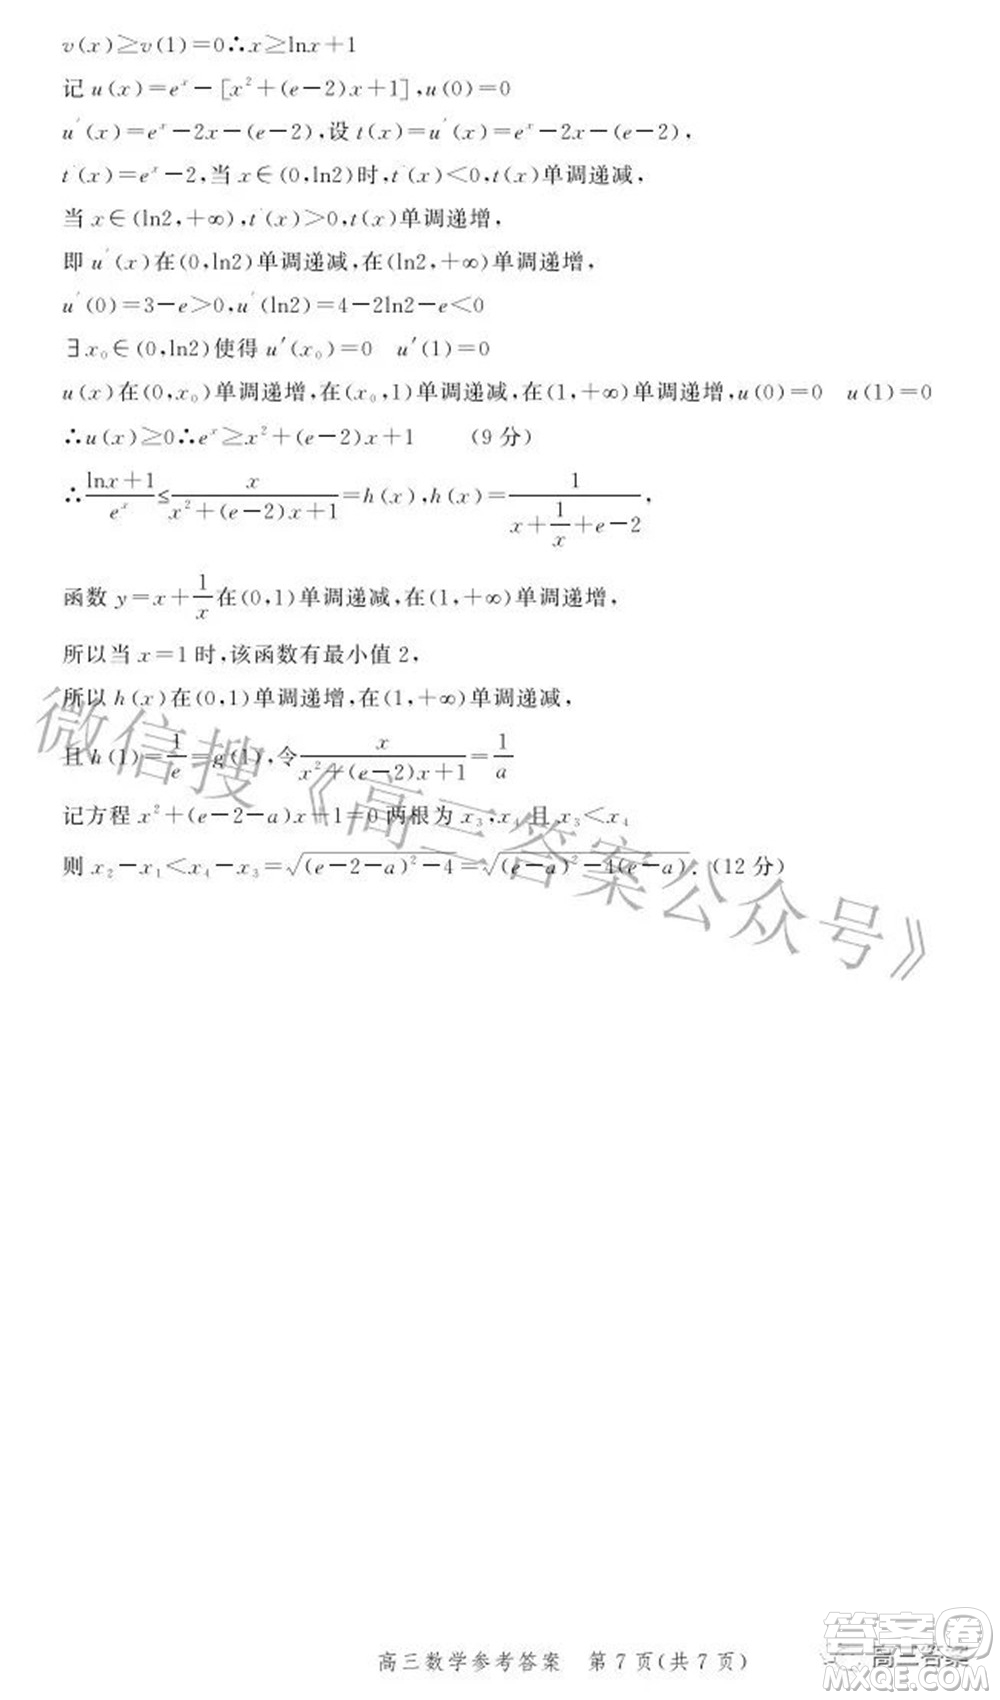 v(x)≥v(1)=0∴x≥lnx+1
记u(x)=eˣ-[x²+(e-2)x+1],u(0)=0
u′(x)=eˣ-2x-(e-2),设t(x)=u′(x)=eˣ-2x-(e-2),
t′(x)=eˣ-2,当x∈(0,ln2)时,t′(x)<0,t(x)单调递减,
当x∈(ln2,+∞),t′(x)>0,t(x)单调递增,
即u′(x)在(0,ln2)单调递减,在(ln2,+∞)单调递增,
u′(0)=3-e>0,u′(ln2)=4-2ln2-e<0
∃x₀∈(0,ln2)使得u′(x₀)=0 u′(1)=0
u(x)在(0,x₀)单调递增,在(x₀,1)单调递减,在(1,+∞)单调递增,u(0)=0 u(1)=0
∴u(x)≥0∴eˣ≥x²+(e-2)x+1 (9分)
∴(lnx+1)/eˣ≤x/(x²+(e-2)x+1)=h(x),h(x)=1/(x+1/x+e-2),
函数y=x+1/x在(0,1)单调递减,在(1,+∞)单调递增,
所以当x=1时,该函数有最小值2,
所以h(x)在(0,1)单调递增,在(1,+∞)单调递减,
且h(1)=1/e=g(1),令x/(x²+(e-2)x+1)=1/a
记方程x²+(e-2-a)x+1=0两根为x₃,x₄且x₃<x₄
则x₂-x₁<x₄-x₃=√((e-2-a)²-4)=√((e-a)²-4(e-a)).(12分)
微信搜《高三答案公众号》
高三数学参考答案 第7页(共7页)
答案圈
高三答案
MXQE.COM